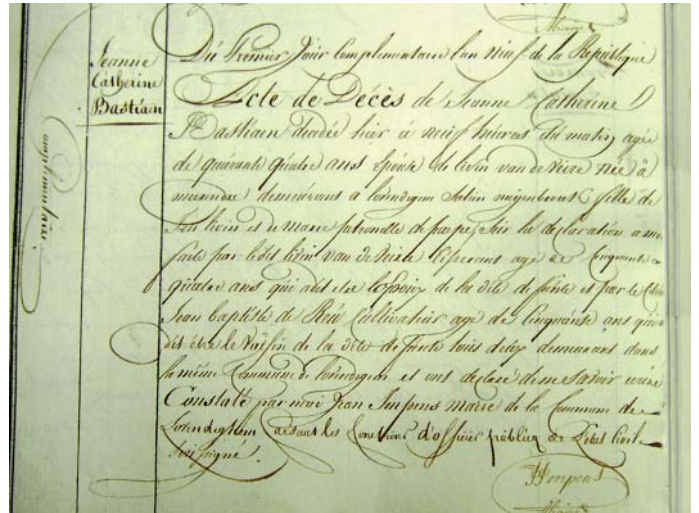 Maire
Jeanne
Catherine
Bastiaen
complementaire
Du Premier Jour Complimentaire l'an Neuf de la Republique
Acte de Décès de Jeanne Catherine
Bastiaen decedé hier à neuf heures du matin agé
de quarante quatre ans épouse de livin van de Née à
demeurant a lovendegem fille de
livin et de marie petronelle de paepe, sur la declaration a moi
faite par ledit livin van de agé de Cinquante
quatre ans qui a dit etre l'Epoux de la dite defunte et par le
Jean baptiste de Cultivateur agé de Cinquante ans qui a
dit être le Voisin de la dite defunte tous deux demeurant dans
la même Commune de lovendegem et ont declaré de ne Savoir ecrire
Constaté par moi Jean Simpens Maire de la Commune de
Lovendeghem faisant les fonctions d'officier publicq de l'Etat Civil
Soussigné.
Maire